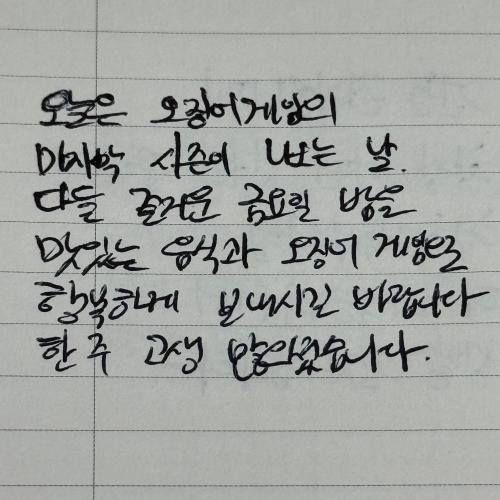 오늘은 오징어게임의
마지막 시즌이 나오는 날.
다들 즐거운 금요일 밤을
맛있는 음식과 오징어 게임으로
행복하게 보내시길 바랍니다
한 주 고생 많으셨습니다.